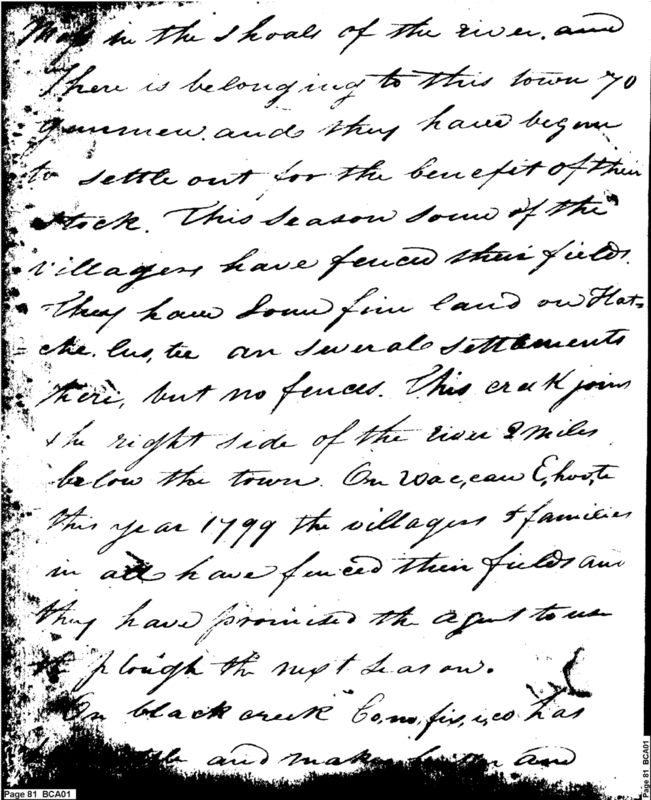 Moss in the shoals of the river. and
There is belonging to this town 70
gunmen. and they have begun
to settle out for the benefit of their
stock. This season some of the
villagers have fenced their fields.
They have some fine land on Hat=
che. lus, tee an several settlements
there, but no fences. This creek joins
the right side of the river 2 miles
below the town. On Wac,cau E,hoo,te
this year 1799 the villagers 5 families
in all have fenced their fields and
they have promised the agent to use
the plough the next season.
On black creek Co,no,fix,ico has
and makes and
Page 81 BCA01
Page 81 BCA01